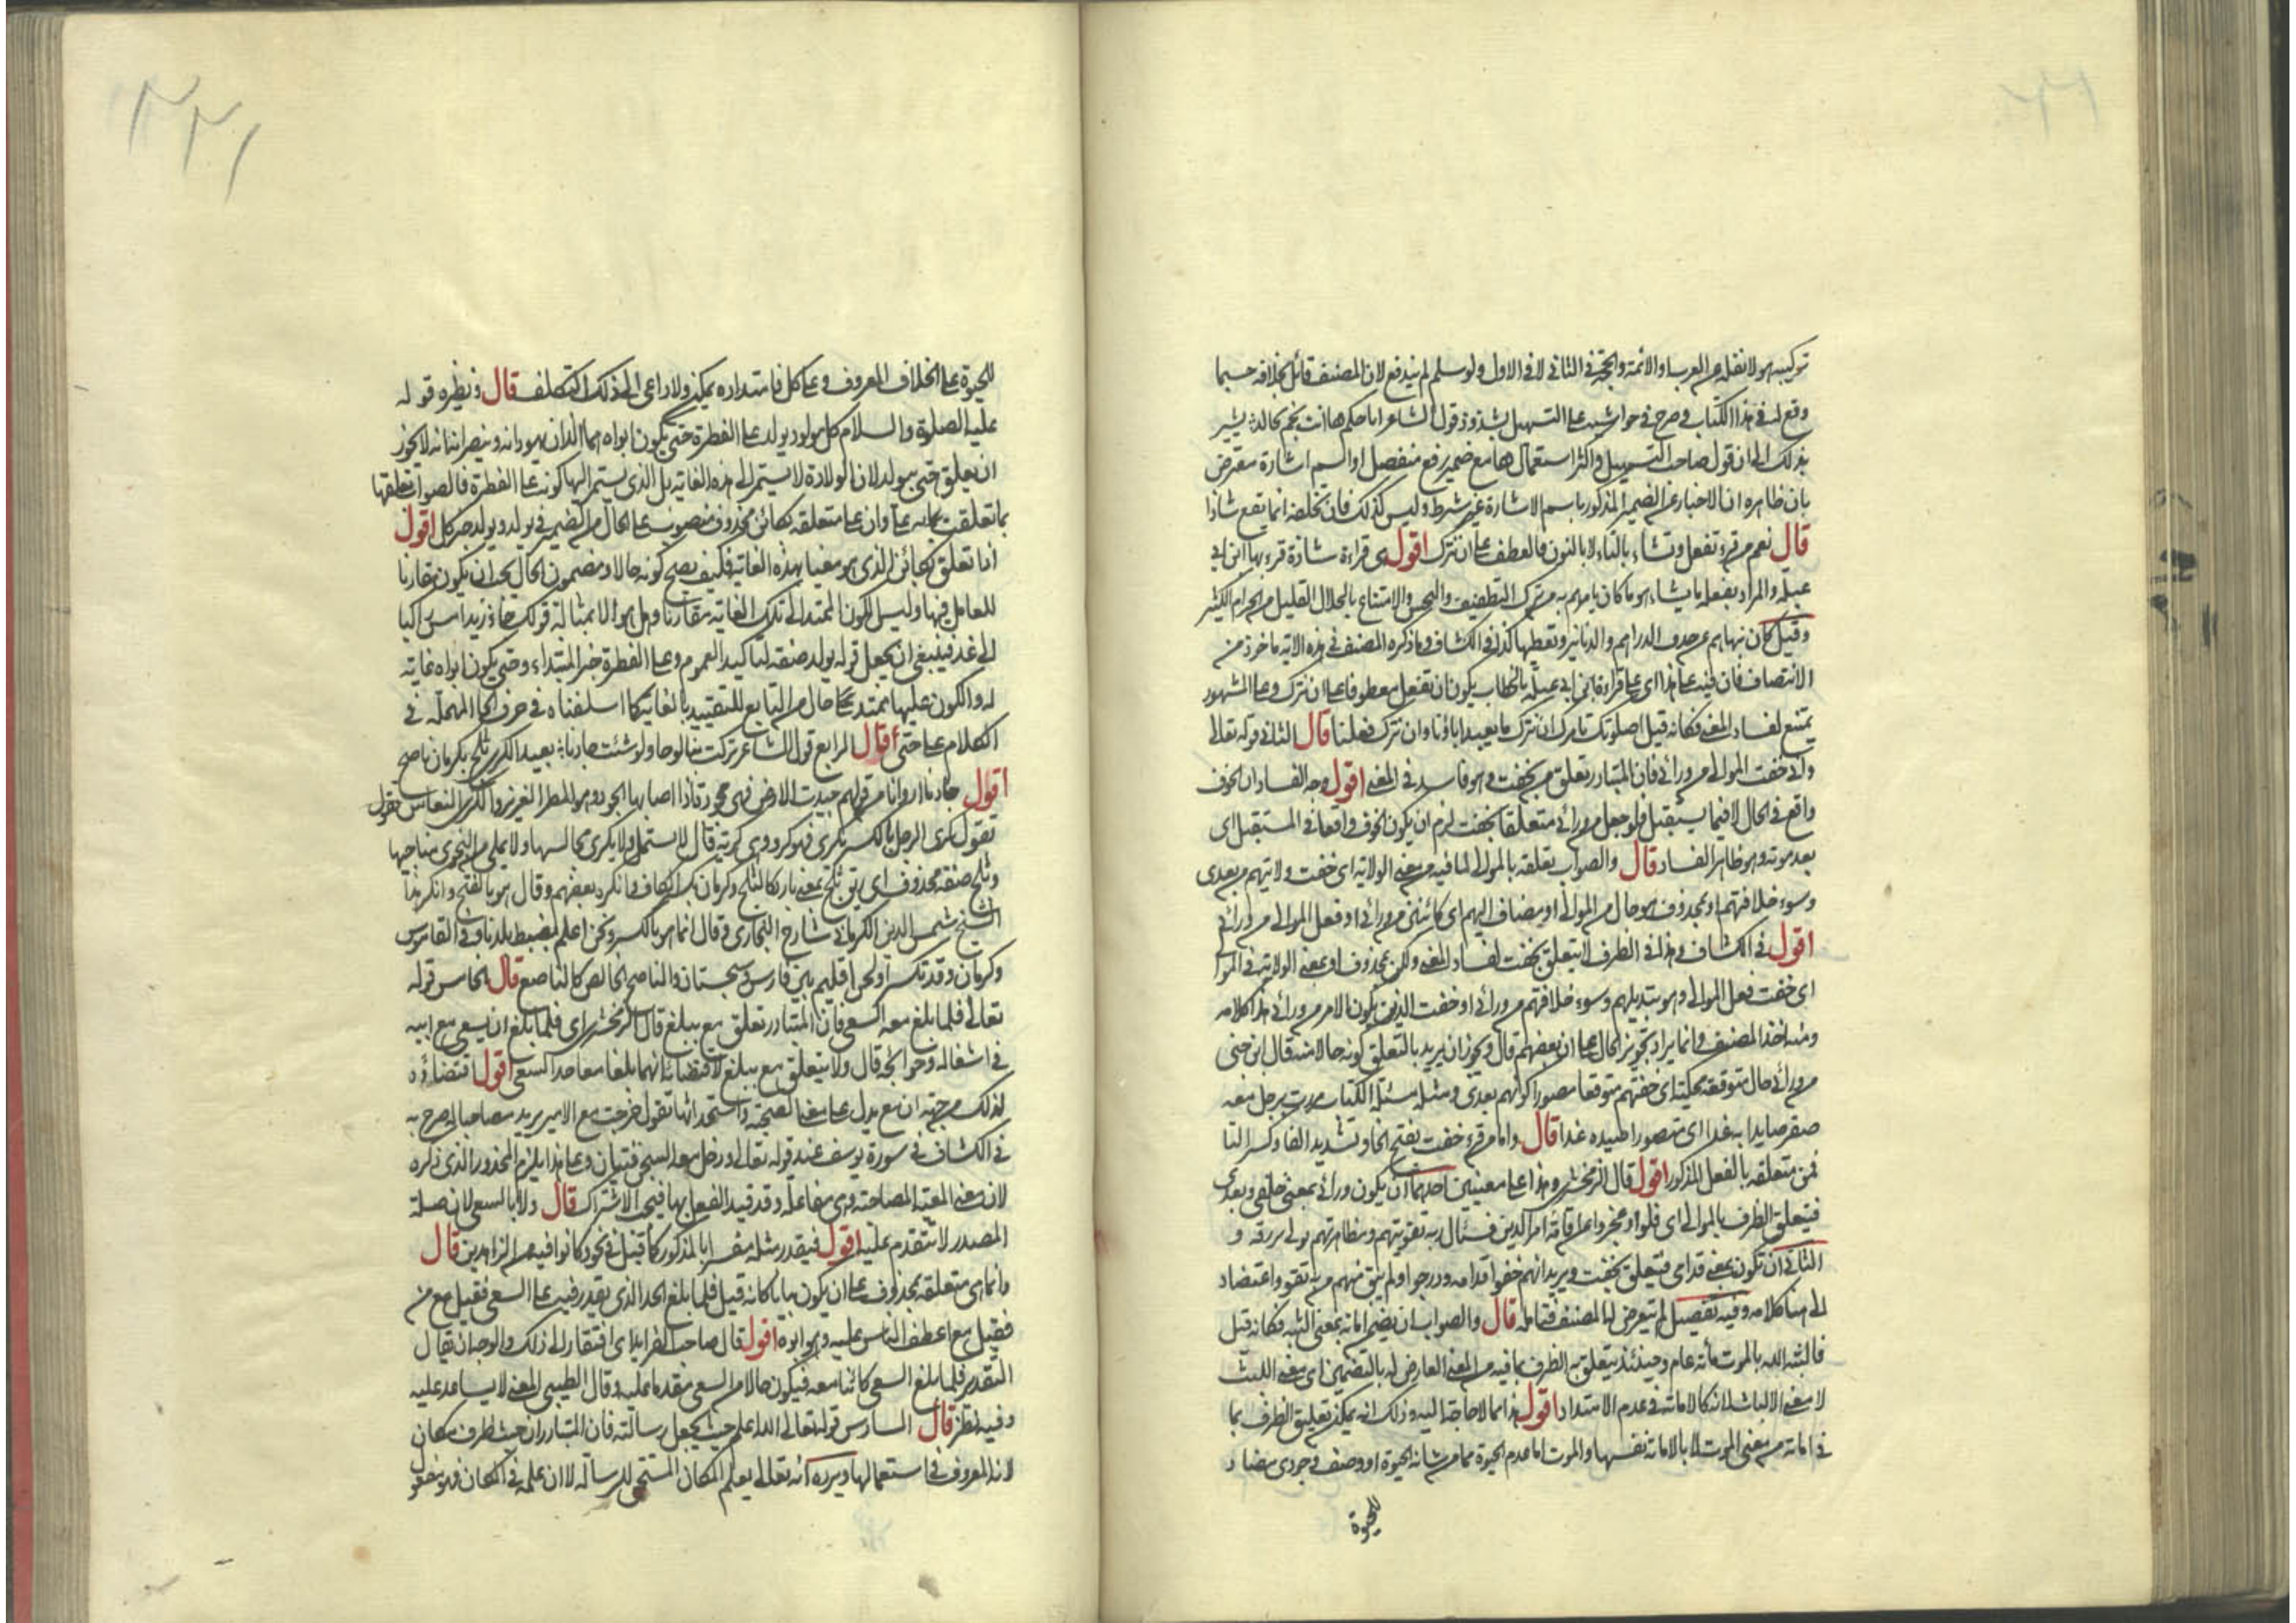 تركيبه هو لا نقله من العرب او الائمة والحجة في الثاني لا في الاول ولو سلم لم يندفع لان المصنف قائل بخلافه حسبما
وقع له في هذا الكتاب وصرح في حواشيه على التسهيل بشذوذ قول الشاعر ابا حكم ها انت نجم مجالد يشير
بذلك الى ان قول صاحب التسهيل واكثر استعمال ها مع ضمير رفع منفصل او اسم اشارة معترض
بان ظاهره ان الاخبار عن الضمير المذكور باسم الاشارة غير شرط وليس كذلك فان تخلفه انما يقع شاذا
قال نعم من قرء تفعل وتشاء بالتاء لا بالنون فالعطف على ان نترك اقول هي قراءة شاذة قرء بها ابن ابي
عبلة والمراد بفعله ما يشاء هو ما كان يامرهم به من ترك التطفيف والبخس والاقتناع بالحلال القليل من الحرام الكثير
وقيل كان نهاهم عن حذف الدراهم والدنانير وتقطيعها كذا في الكشاف وما ذكره المصنف في هذه الاية ماخوذ من
الانتصاف فان فيه على هذا اي على قراءة ابن ابي عبلة بالخطاب يكون ان تفعل معطوفا على ان نترك وعلى المشهور
يمتنع لفساد المعنى فكانه قيل اصلوتك تامرك ان نترك ما يعبد اباؤنا وان نترك فعلنا قال الثاني قوله تعالى
واني خفت الموالي من ورائي فان المتبادر تعلق من بخفت وهو فاسد في المعنى اقول وجه الفساد ان الخوف
واقع في الحال لا فيما يستقبل فلو جعل من ورائي متعلقا بخفت لزم ان يكون الخوف واقعا في المستقبل اي
بعد موته وهو ظاهر الفساد قال والصواب تعلقه بالموالي لما فيه من معنى الولاية اي خفت ولايتهم من بعدي
وسوء خلافتهم او بمحذوف هو حال من الموالي او مضاف اليهم اي كائنين من ورائي او فعل الموالي من ورائي
اقول في الكشاف وهذا الظرف لا يتعلق بخفت لفساد المعنى ولكن بمحذوف او بمعنى الولاية في الموا
اي خفت فعل الموالي وهو تبديلهم وسوء خلافتهم من ورائي او خفت الذين يكون الامر من ورائي هذا كلامه
ومنه اخذ المصنف وانما يراد تجويز الحال على ان بعضهم قال ويجوز ان يريد بالتعلق كونه حالا منه قال ابن جني
من ورائي حال متوقعة محكية اي خفتهم متوقعا متصورا كونهم بعدي ومثله مسئلة الكتاب مررت برجل معه
صقر صايدا به غدا اي متصورا صيده غدا قال واما من قرء خفت بفتح الخاء وتشديد الفاء وكسر التا
فمن متعلقة بالفعل المذكور اقول قال الزمخشري وهذا على معنيين احدهما ان يكون ورائي بمعنى خلفي وبعدي
فيتعلق الظرف بالموالي اي قلوا وعجزوا عن اقامة امر الدين فسال ربه تقويتهم ومظاهرتهم بولي يرزقه و
الثاني ان تكون بمعنى قدامي فيتعلق بخفت ويريد انهم خفوا قدامه ودرجوا ولم يبق منهم من به تقو واعتضاد
الى هنا كلامه وفيه تفصيل لم يتعرض له المصنف فتامله قال والصواب ان يضمن اماته بمعنى البثه فكانه قيل
فالبثه الله بالموت مائة عام وحينئذ يتعلق به الظرف بما فيه من المعنى العارض له بالتضمين اي معنى اللبث
لا معنى الالباث لانه كالاماتة في عدم الامتداد اقول هذا مما لا حاجة اليه وذلك انه يمكن تعليق الظرف بما
في اماته من معنى الموت لا بالاماتة نفسها والموت اما عدم الحيوة عما من شانه الحيوة او وصف وجودي مضاد
للحيوة
٢٢١
للحيوة على الخلاف المعروف وعلى كل فامتداده يمكن ولا داعي الى ذلك التكلف قال ونظيره قوله
عليه الصلوة والسلام كل مولود يولد على الفطرة حتى يكون ابواه هما اللذان يهودانه وينصرانه لا يجوز
ان يعلق حتى بيولد لان الولادة لا يستمر الى هذه الغاية بل الذي يستمر اليها كونه على الفطرة فالصواب تعلقها
بما تعلقت به على وان على متعلقة بكائن محذوف منصوب على الحال من الضمير في يولد ويولد خبر كل اقول
اذا تعلق بكائن الذي هو مغيا بهذه الغاية فكيف يصح كونه حالا ومضمون الحال يجب ان يكون مقارنا
للعامل فيها وليس الكون الممتد الى تلك الغاية مقارنا وهل هو الا بمثابة قولك جاء زيد امس راكبا
الى غد فينبغي ان يجعل قوله يولد صفة تاكيد العموم وعلى الفطرة خبر المبتداء وحتى يكون ابواه غاية
له والكون عليها ممتد على حال من التابع للتقييد بالغاية كما اسلفناه في حرف الحاء المهملة في
الكلام على حتى قال الرابع قول الشاعر تركت بنا لوحا ولو شئت جادنا بعيد الكرى ثلج بكرمان ناصح
اقول جادنا اروانا من قولهم جيدت الارض فهي مجودة اذا اصابها الجود وهو المطر الغزير والكرى النعاس تقول
تقول كرى الرجل بالكسر يكرى فهو كر وهي كرية قال لا يستمل ولا يكرى مجالسها ولا يمل من النجوى مناجيها
وثلج صفة محذوف اي ريق ثلج بمعنى بارد كالثلج وكرمان بكسر الكاف وانكره بعضهم وقال هو بالفتح وانكر هذا
الشيخ شمس الدين الكرماني شارح البخاري وقال انما هو بالكسر ونحن اعلم بضبط بلدنا وفي القاموس
وكرمان وقد تكسر اوله اقليم بين فارس وسجستان والناصح الخالص كالناصع قال الخامس قوله
تعالى فلما بلغ معه السعي فان المتبادر تعلق مع ببلغ قال الزمخشري اي فلما بلغ ان يسعى مع ابيه
في اشغاله وحوائجه قال ولا يتعلق مع ببلغ لاقتضائه انهما بلغا معا حد السعي اقول اقتضاؤه
لذلك من جهة ان مع يدل على معنى الصحبة واستحداثها تقول خرجت مع الامير يريد مصاحبا له صرح به
في الكشاف في سورة يوسف عند قوله تعالى ودخل معه السجن فتيان وعلى هذا يلزم المحذور الذي ذكره
لان معنى المعية المصاحبة وهي مفاعلة وقد قيد الفعل بها فيجب الاشتراك قال ولا بالسعي لان صلة
المصدر لا تتقدم عليه اقول فيقدر مثله مفسرا بالمذكور كما قيل في نحو وكانوا فيه من الزاهدين قال
وانما هي متعلقة بمحذوف على ان يكون بيانا كانه قيل فلما بلغ الحد الذي يقدر فيه على السعي فقيل مع من
فقيل مع اعطف الناس عليه وهو ابوه اقول قال صاحب الفرايد اي افتقار الى ذلك والوجه ان يقال
التقدير فلما بلغ السعي كائنا معه فيكون حالا من السعي مقدما عليه وقال الطيبي المعنى لا يساعد عليه
وفيه نظر قال السادس قوله تعالى الله اعلم حيث يجعل رسالته فان المتبادر ان حيث ظرف مكان
لانه المعروف في استعمالها ويرده انه تعالى يعلم المكان المستحق للرسالة لا ان علمه في المكان فهو مفعو